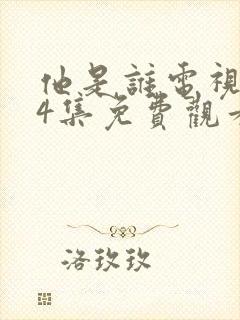 他是誰電視
4集免費觀看
洛玖玖